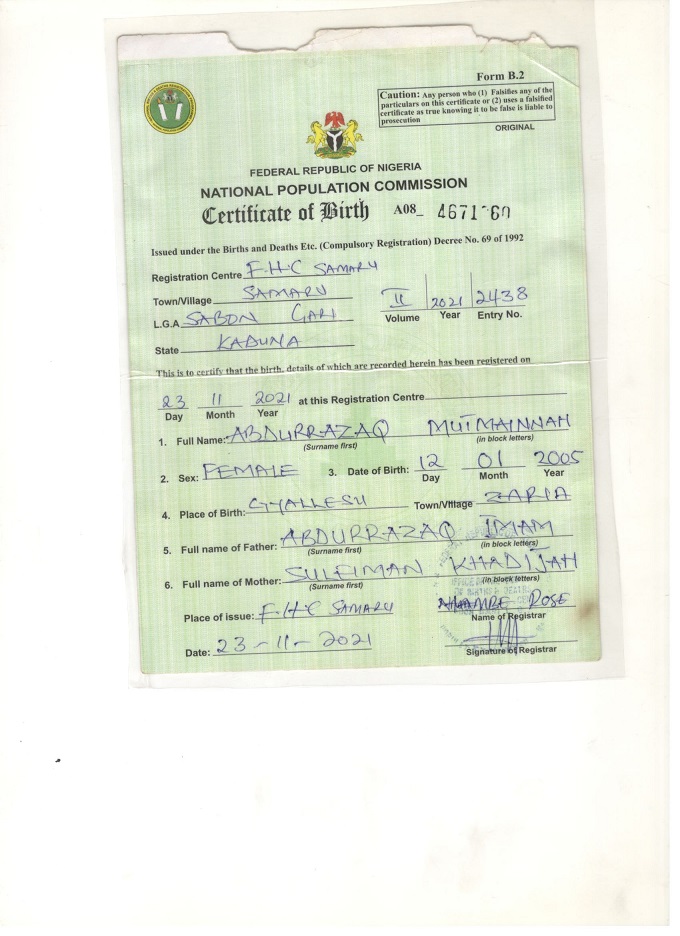 Form B.2
Caution: Any person who (1) Falsifies any of the
particulars on this certificate or (2) uses a falsified
certificate as true knowing it to be false is liable to
prosecution
ORIGINAL
FEDERAL REPUBLIC OF NIGERIA
NATIONAL POPULATION COMMISSION
Certificate of Birth A08_ 4671760
Issued under the Births and Deaths Etc. (Compulsory Registration) Decree No. 69 of 1992
Registration Centre F.H.C SAMARU
Town/Village SAMARU
L.G.A SABON GARI
State KADUNA
II 2021 2438
Volume Year Entry No.
This is to certify that the birth, details of which are recorded herein has been registered on
23 11 2021 at this Registration Centre
Day Month Year
1. Full Name: ABDURRAZAQ MUTMAINNAH
(Surname first) (in block letters)
2. Sex: FEMALE 3. Date of Birth: 12 01 2005
Day Month Year
4. Place of Birth: GYALLESU Town/Village ZARIA
5. Full name of Father: ABDURRAZAQ IMAM
(Surname first) (in block letters)
6. Full name of Mother: SULEIMAN KHADIJAH
(Surname first) (in block letters)
Place of issue: F.H.C SAMARU ROSE
Name of Registrar
Date: 23-11-2021
Signature of Registrar